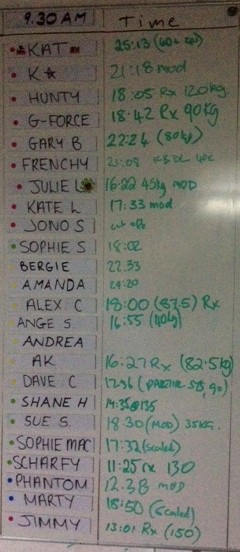 9.30 AM Time
KAT 25:13
K★ 21:18 mod
HUNTY 18:05 Rx 120kg
G-FORCE 18:42 Rx 90kg
GARY B 22:24 (80kg)
FRENCHY
JULIE L 16:22 45kg MOD
KATE L 17:33 mod
JONO S
SOPHIE S 18:02
BERGIE 22.33
AMANDA
ALEX C 18:00 (87.5) Rx
ANGE S. 16:55 (40kg)
ANDREA
AK 16:27 Rx (82.5kg)
DAVE C
SHANE H 14:35@135
SUE S. 18:30 (MOD) 35KG.
SOPHIE MAC 17:32 (scaled)
SCHARFY 11:25 rx 130
PHANTOM 12.38 MOD
MARTY 18:50 (scaled)
JIMMY 13:01 Rx (150)